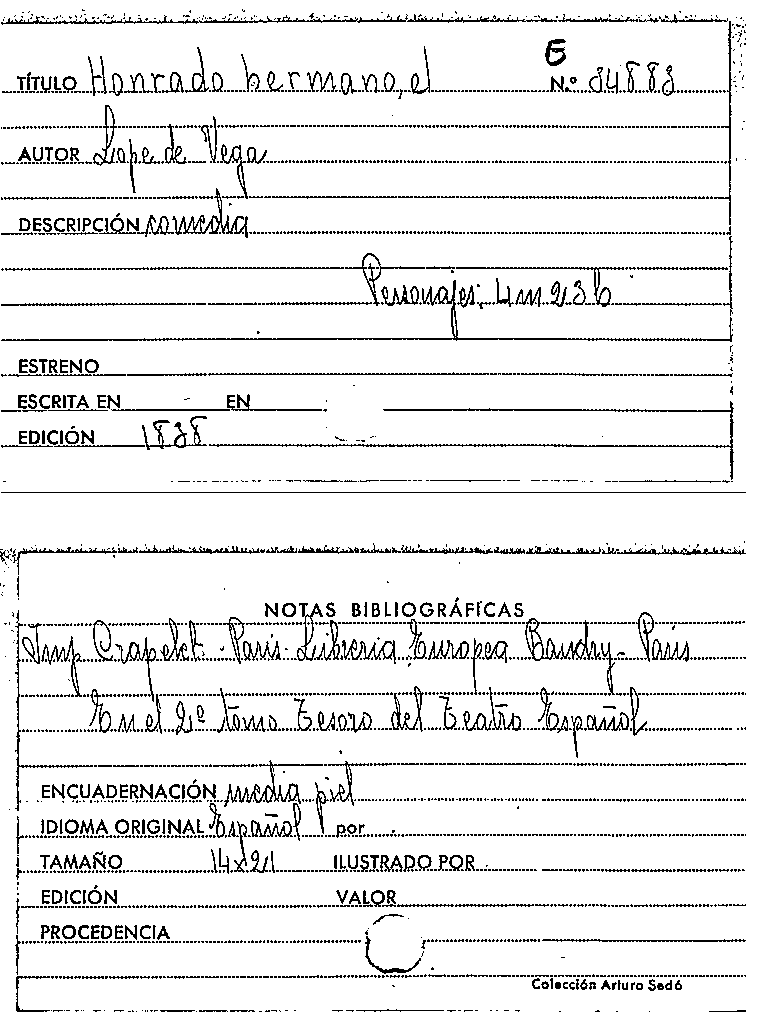 E
TÍTULO Honrado hermano, el N.º 34883
AUTOR Lope de Vega
DESCRIPCIÓN comedia
Personajes: 4m 23h
ESTRENO
ESCRITA EN - EN
EDICIÓN 1838
NOTAS BIBLIOGRÁFICAS
Imp Crapelet - Paris - Libreria Europea Baudry - Paris
En el 2º tomo Tesoro del Teatro Español
ENCUADERNACIÓN media piel
IDIOMA ORIGINAL Español por
TAMAÑO 14x21 ILUSTRADO POR
EDICIÓN VALOR
PROCEDENCIA
Colección Arturo Sedó